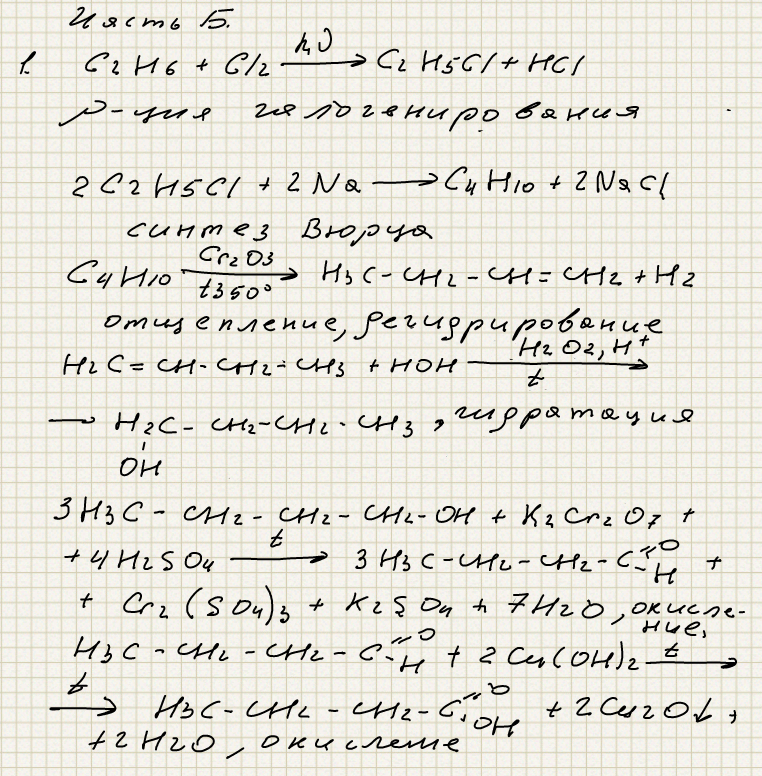 Часть Б.
1. C2H6 + Cl2 —hν→ C2H5Cl + HCl
р-ция галогенирования
2C2H5Cl + 2Na → C4H10 + 2NaCl
синтез Вюрца
C4H10 —Cr2O3, t350°→ H3C-CH2-CH=CH2 + H2
отщепление, дегидрирование
H2C=CH-CH2-CH3 + HOH —H2O2, H+, t→
→ H2C-CH2-CH2-CH3, гидратация
OH
3H3C-CH2-CH2-CH2-OH + K2Cr2O7 +
+ 4H2SO4 —t→ 3H3C-CH2-CH2-C(=O)-H +
+ Cr2(SO4)3 + K2SO4 + 7H2O, окисле-
ние,
H3C-CH2-CH2-C(=O)-H + 2Cu(OH)2 —t→
—t→ H3C-CH2-CH2-C(=O)-OH + 2Cu2O↓ +
+ 2H2O, окисление